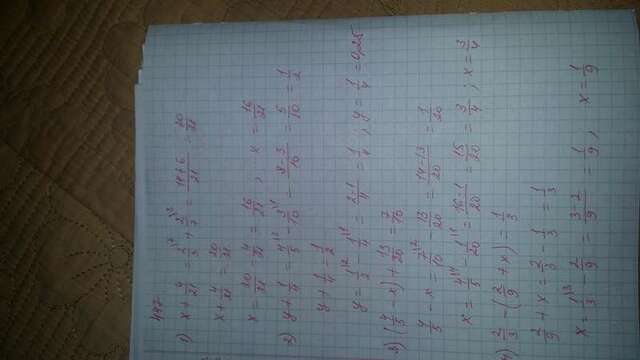 447
1) x + 4/21 = 2/3 + 2/7 = 14+6/21 = 20/21
x + 4/21 = 20/21
x = 20/21 - 4/21 = 16/21 ; x = 16/21
2) y + 1/4 = 4/5 - 3/10 = 8-3/10 = 5/10 = 1/2
y + 1/4 = 1/2
y = 1/2 - 1/4 = 2-1/4 = 1/4 ; y = 1/4 = 0,25
3) (4/5 - x) + 13/20 = 7/10
4/5 - x = 7/10 - 13/20 = 14-13/20 = 1/20
x = 4/5 - 1/20 = 16-1/20 = 15/20 = 3/4 ; x = 3/4
4) 2/3 - (2/9 + x) = 1/3
2/9 + x = 2/3 - 1/3 = 1/3
x = 1/3 - 2/9 = 3-2/9 = 1/9 ; x = 1/9